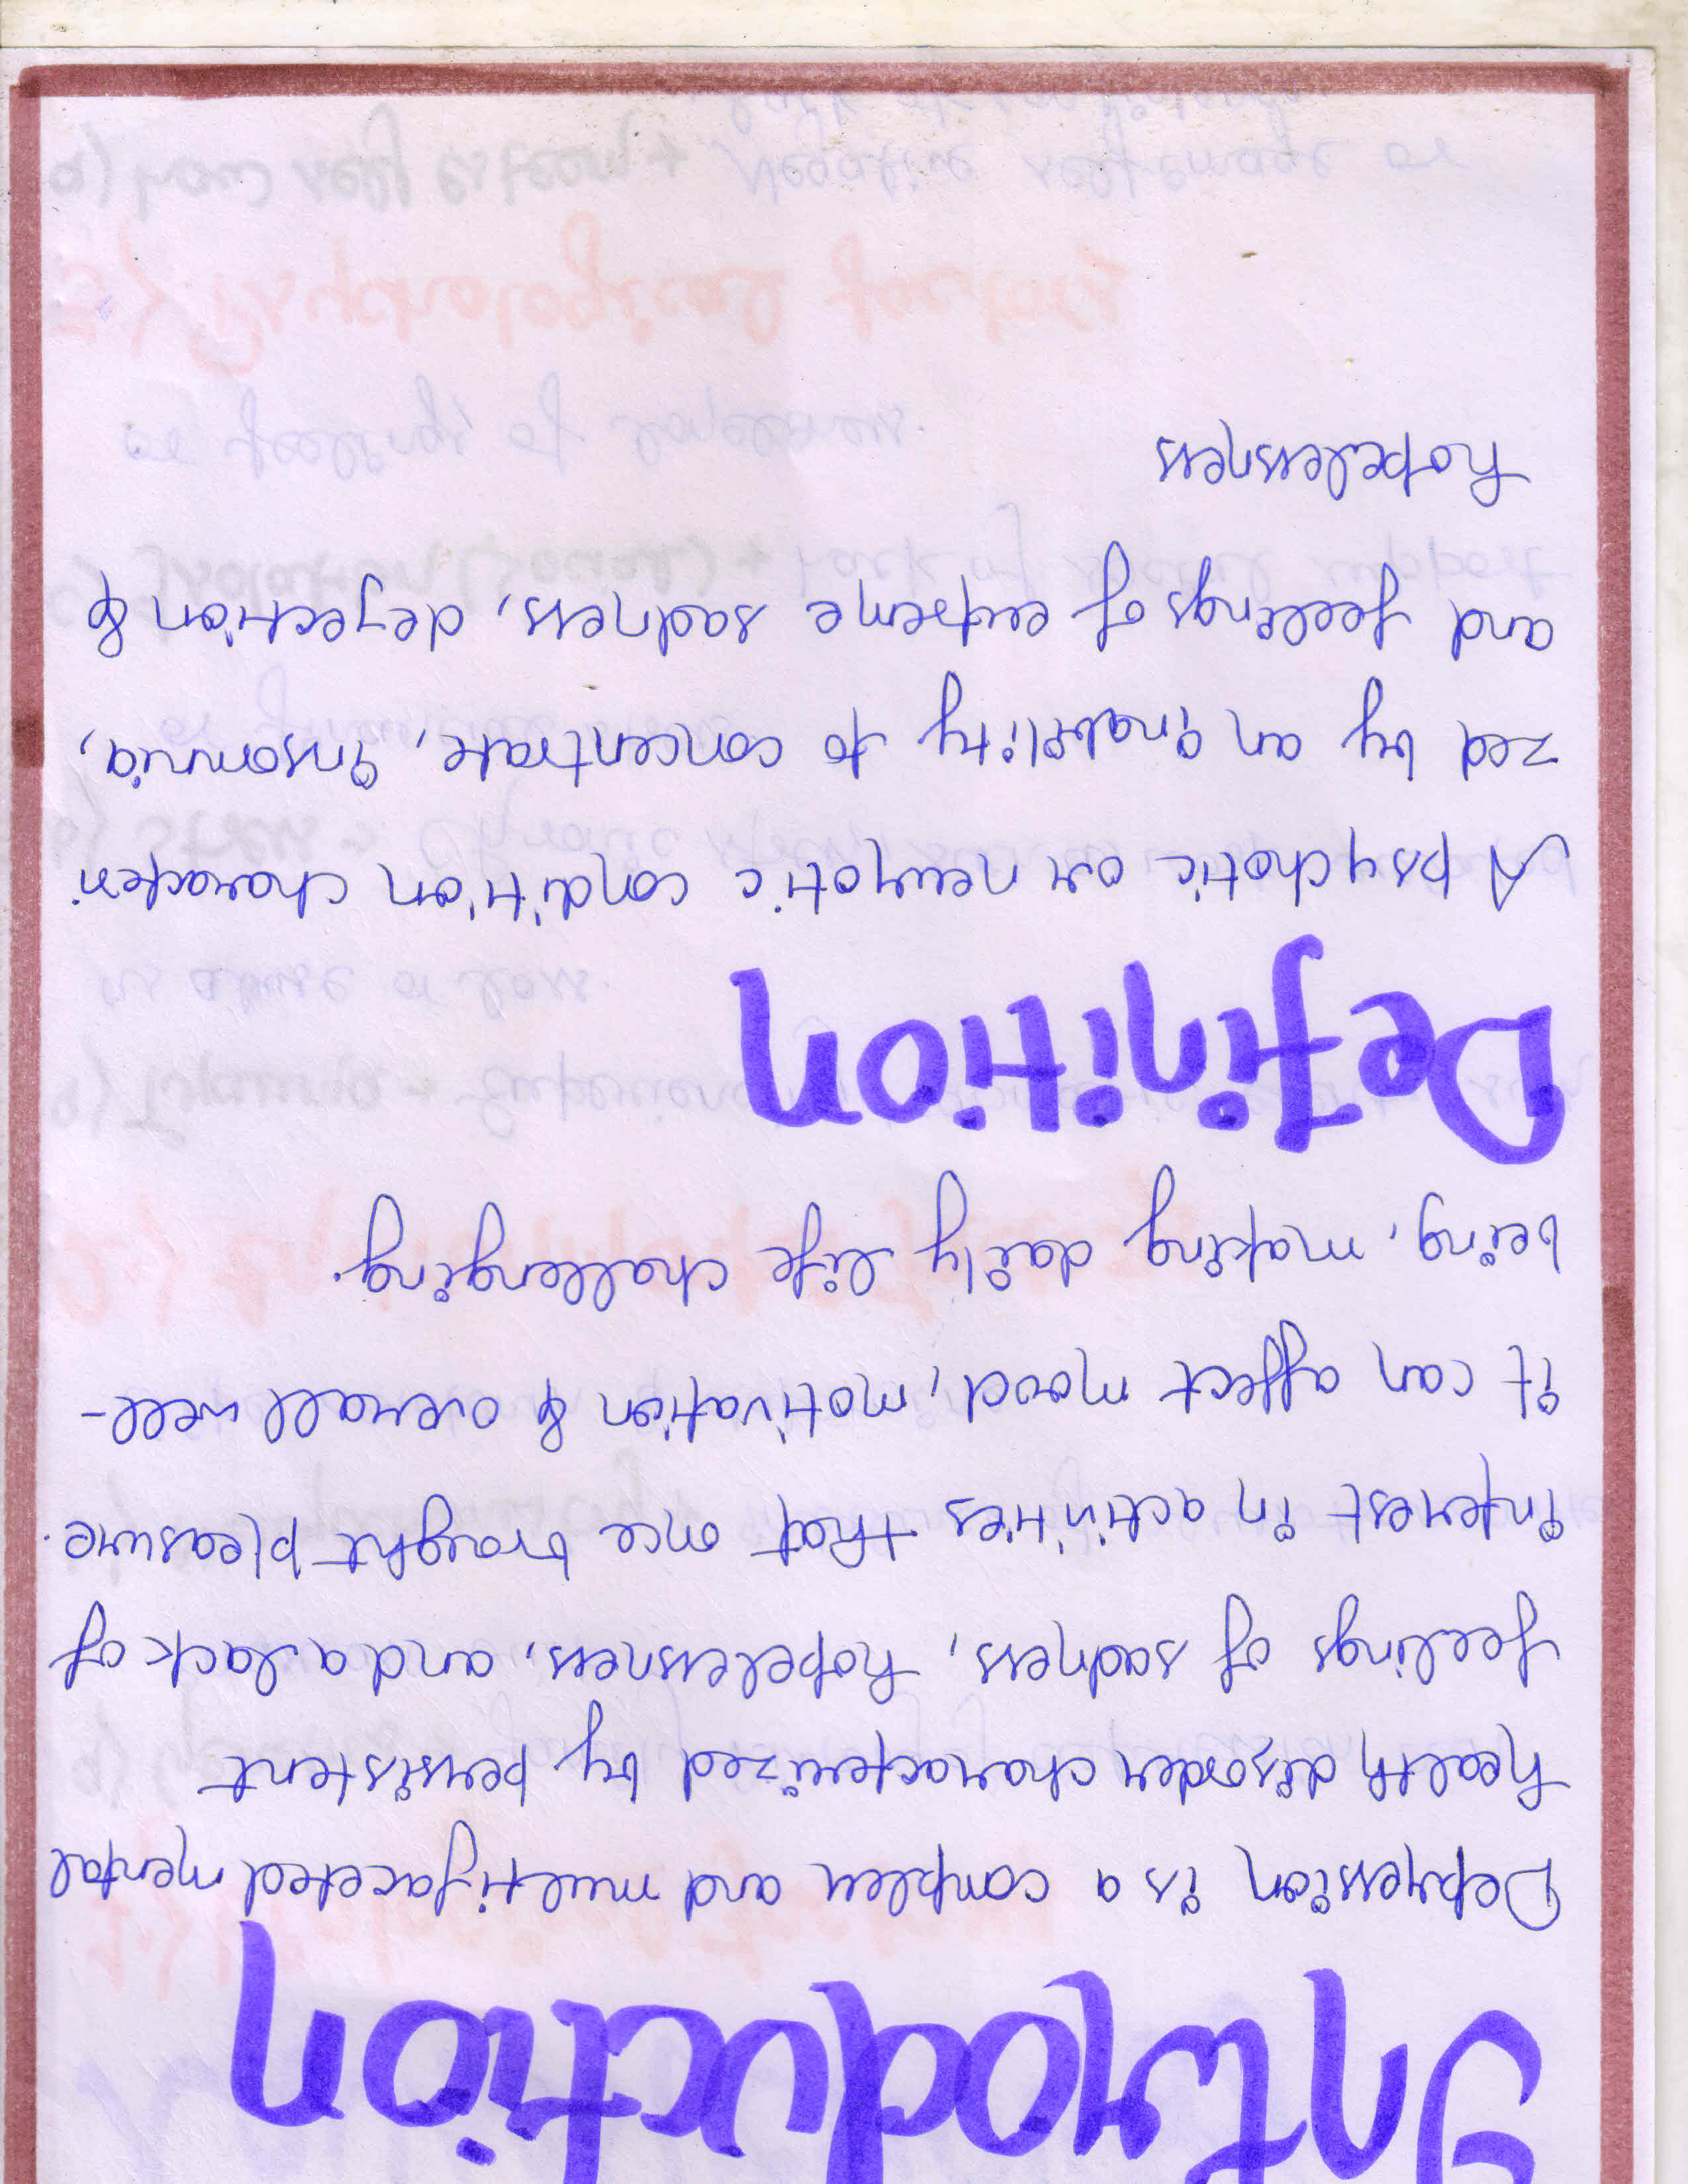 Introduction
Depression is a complex and multifaceted mental
health disorder characterized by persistent
feelings of sadness, hopelessness, and a lack of
interest in activities that once brought pleasure.
it can affect mood, motivation & overall well-
being, making daily life challenging.
Definition
A psychotic or neurotic condition character
zed by an inability to concentrate, insomnia,
and feelings of extreme sadness, dejection &
hopelessness